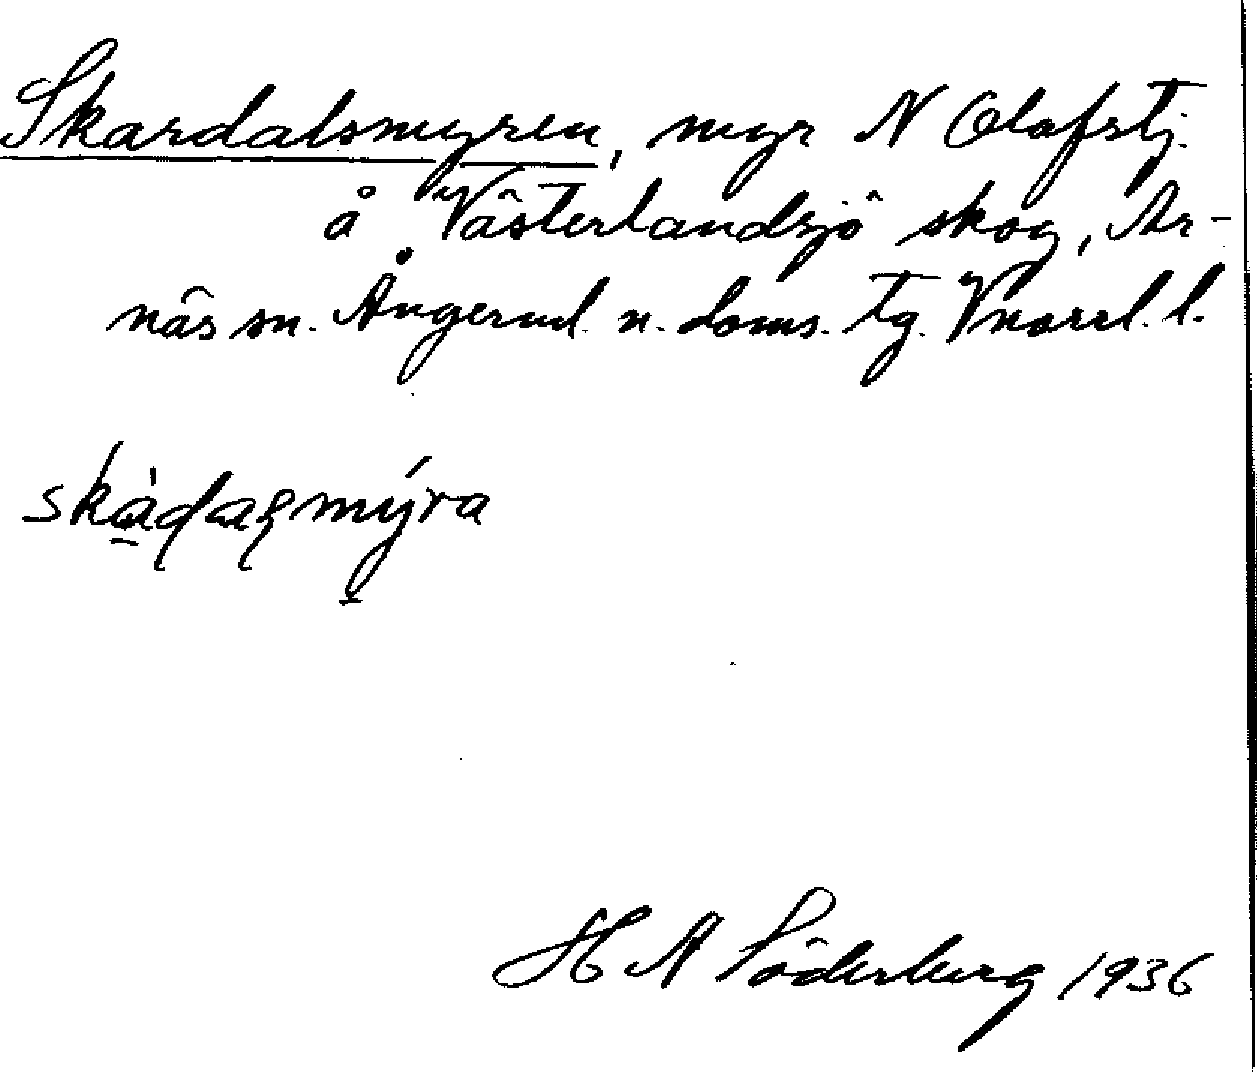 Skardalsmyren, myr N Olafstj.
å Västerlandsjö skog, Ar-
näs sn. Ångerml. n. doms. tg. Vnorrl. l.
skàdaʂmýra
H N Söderberg 1936